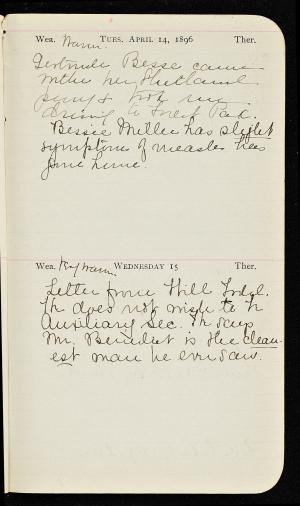 Wea. Warm. TUES. APRIL 14, 1896 Ther.
Gertrude Besse came
with her Shetland
pony & took me
driving to Forest Park.
Bessie Miller has slight
symptoms of measles has
gone home.
Wea. Very warm. WEDNESDAY 15 Ther.
Letter from Will
He does not wish to be
Auxiliary Sec. He says
Mr. Benedict is the clean-
est man he ever saw.